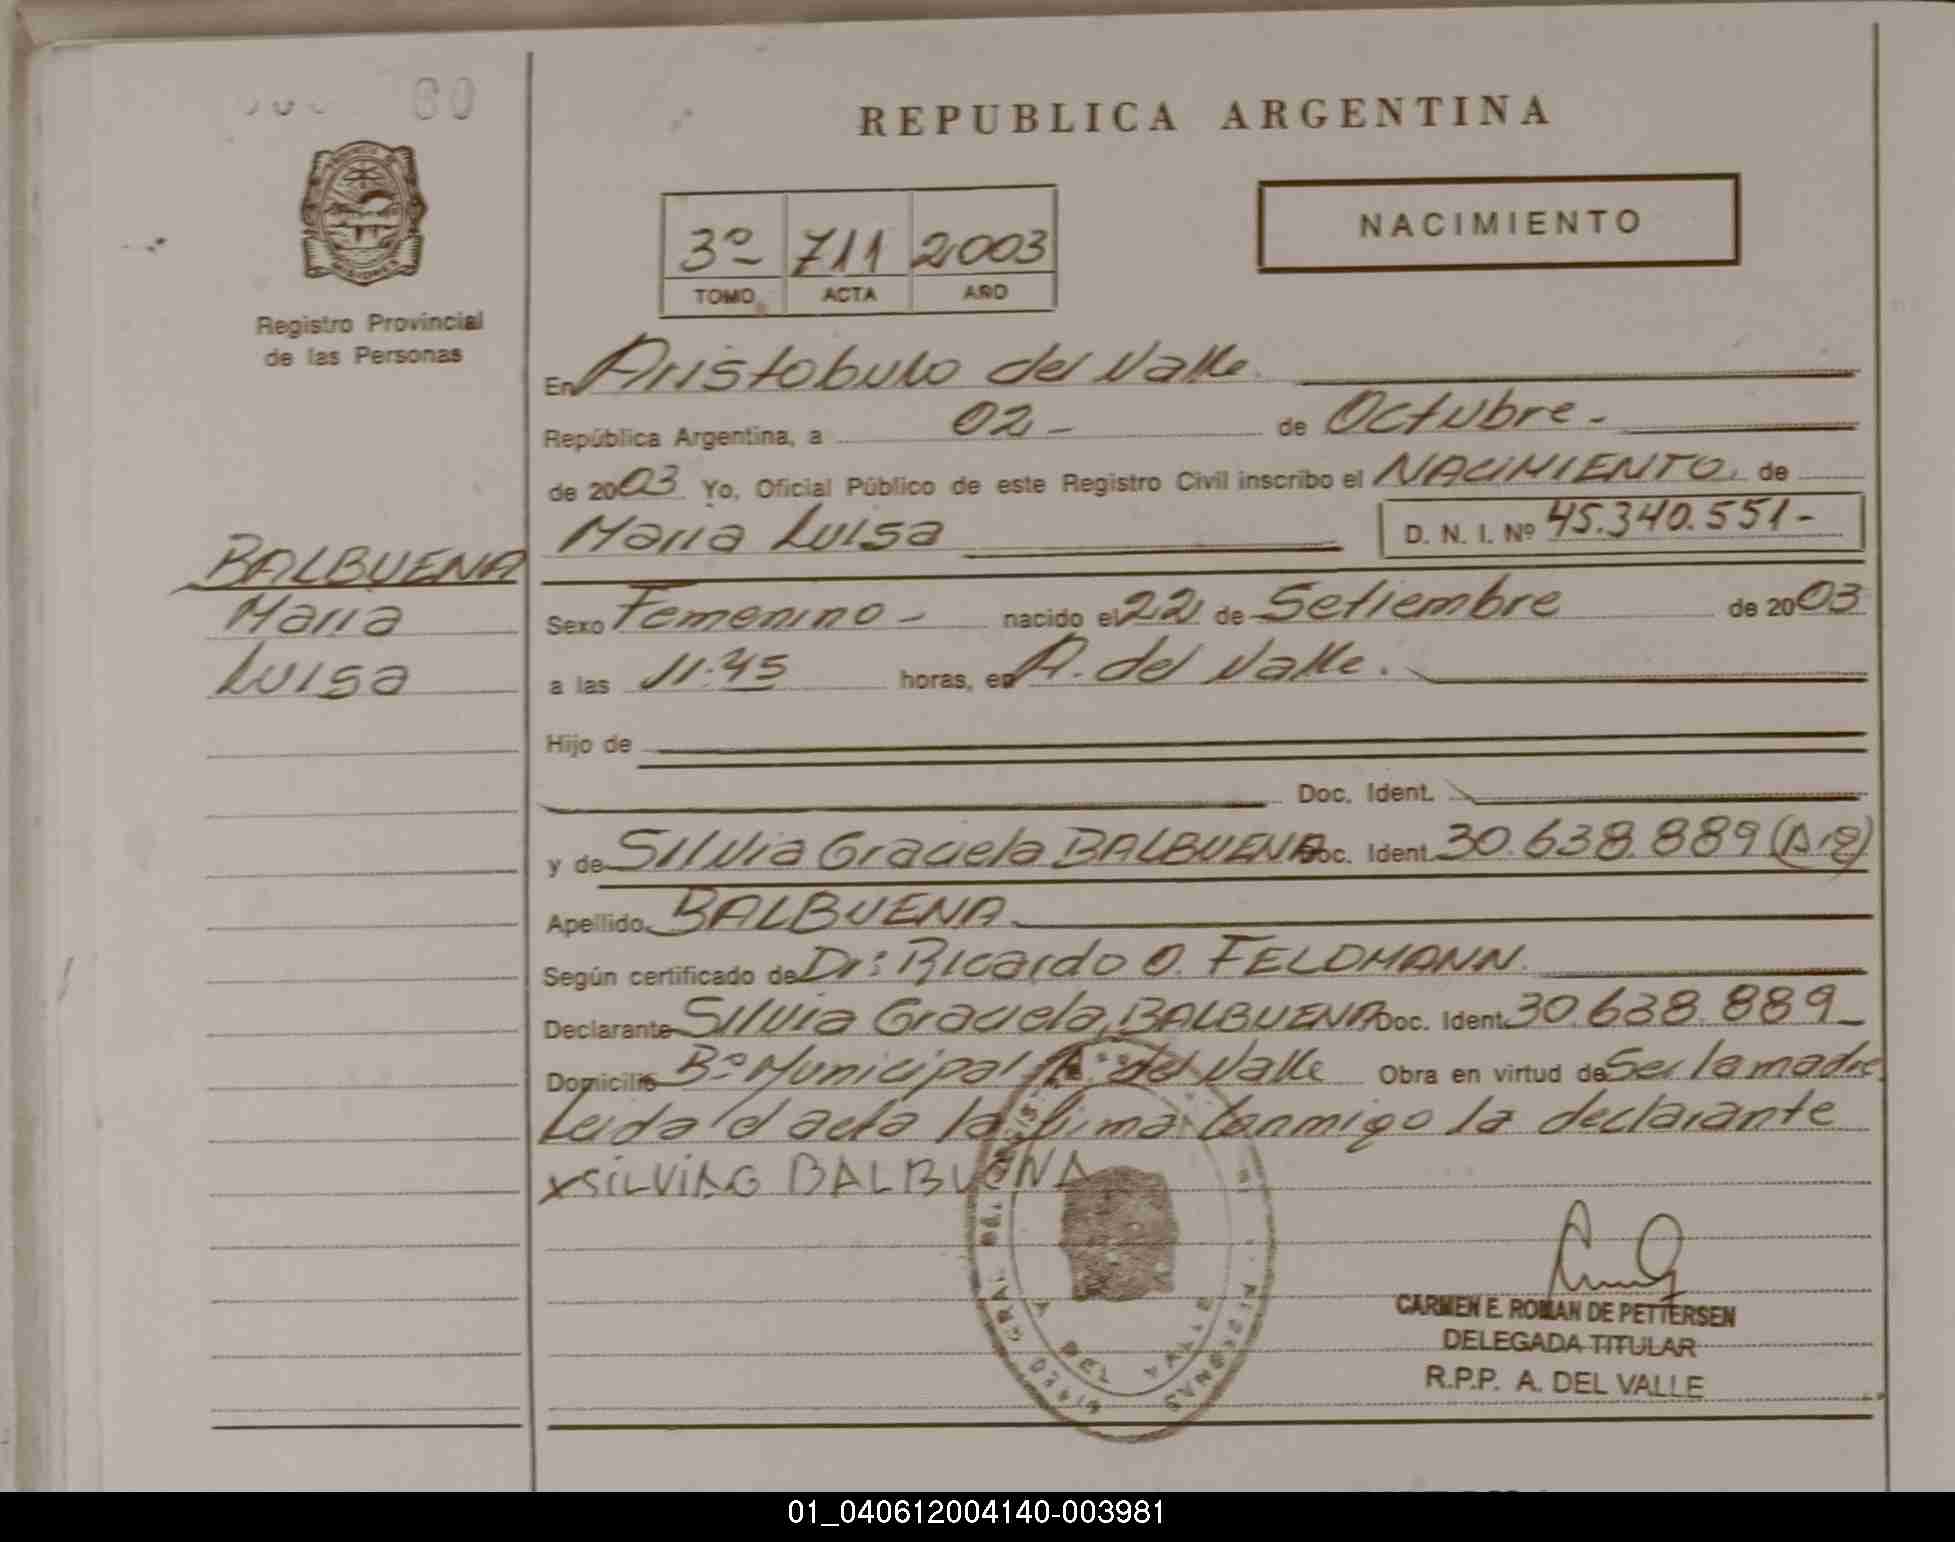 60
REPUBLICA ARGENTINA
NACIMIENTO
3º 711 2003
TOMO ACTA AÑO
MISIONES
Registro Provincial
de las Personas
BALBUENA
Maria
Luisa
En Aristobulo del Valle.
República Argentina, a 02- de Octubre-
de 2003 Yo, Oficial Público de este Registro Civil inscribo el NACIMIENTO. de
Maria Luisa D. N. I. Nº 45.340.551-
Sexo Femenino- nacido el 22 de Setiembre de 2003
a las 11:45 horas, en A. del Valle.
Hijo de
Doc. Ident.
y de Silvia Graciela BALBUENA Doc. Ident. 30.638.889 (Arg)
Apellido BALBUENA
Según certificado de Dr: Ricardo O. FELDMANN.
Declarante Silvia Graciela BALBUENA Doc. Ident. 30.638.889-
Domicilio Bº Municipal Aº del Valle Obra en virtud de Ser la madre
Leida el acta la firma conmigo la declarante
x SiLViAG BALBUENA
CARMEN E. ROMAN DE PETTERSEN
DELEGADA TITULAR
R.P.P. A. DEL VALLE
01_040612004140-003981